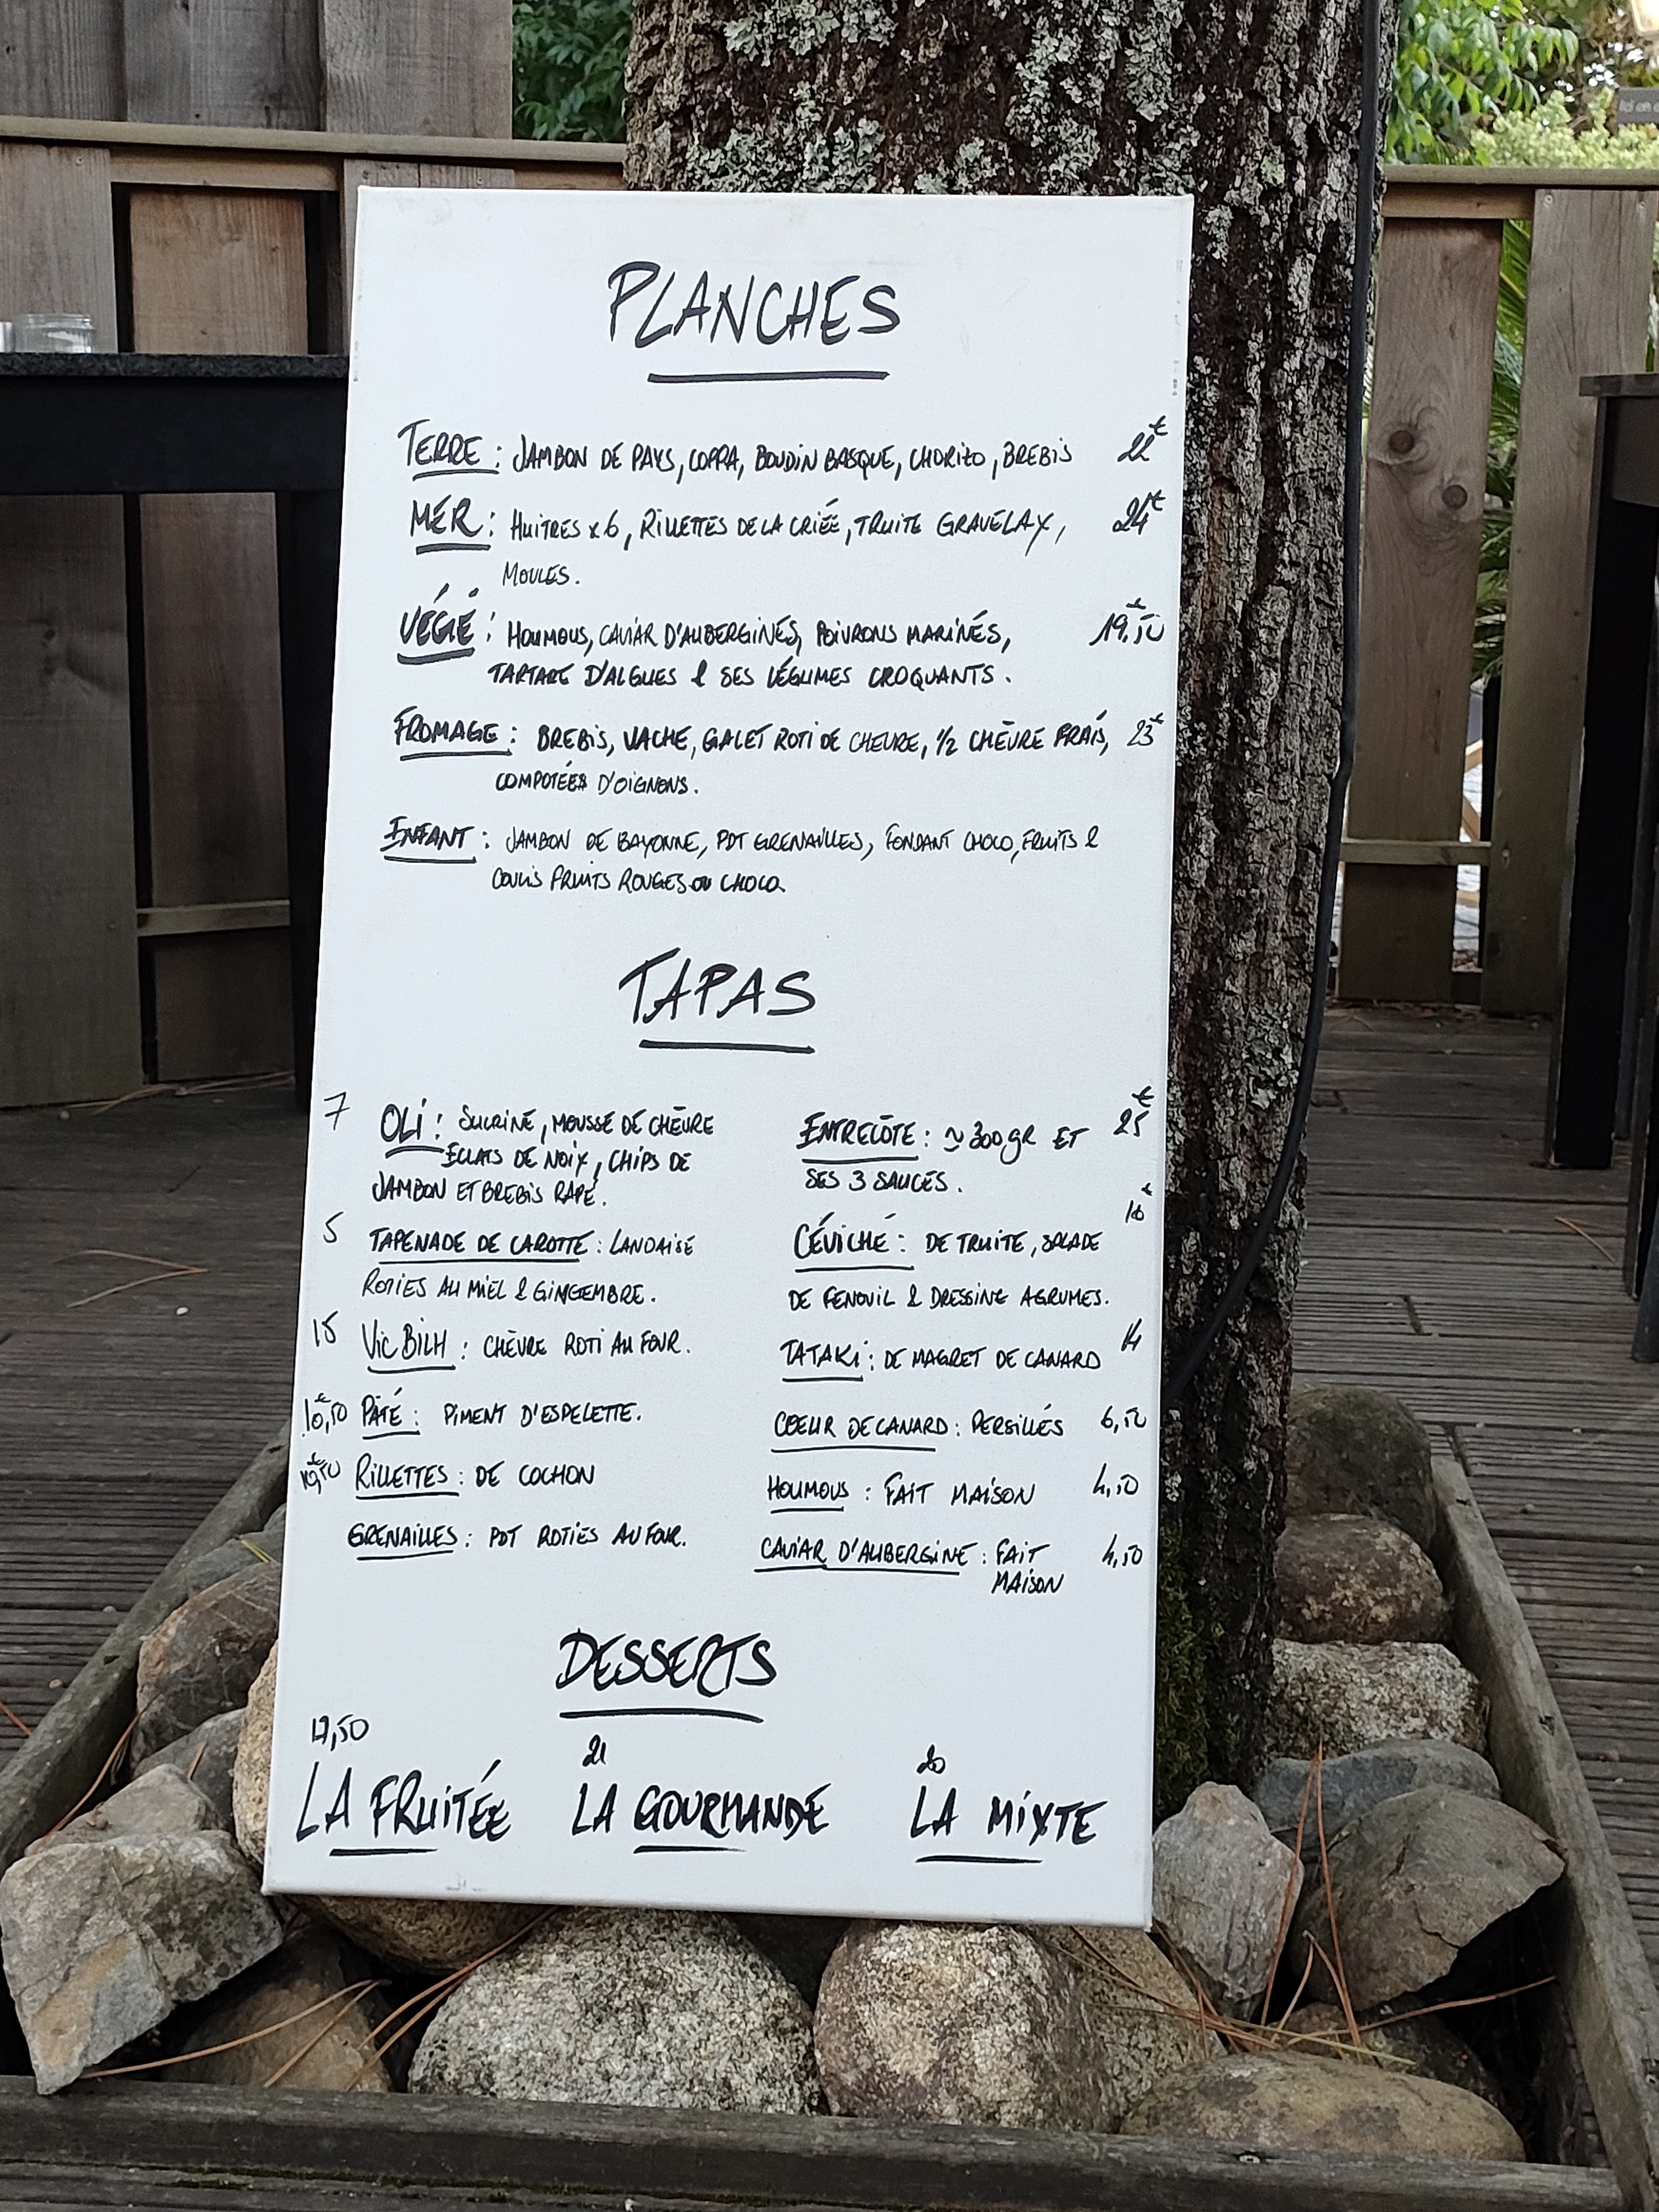 PLANCHES
TERRE : JAMBON DE PAYS, COPPA, BOUDIN BASQUE, CHORIZO, BREBIS 22€
MER : HUITRES x6, RILLETTES DE LA CRIÉE, TRUITE GRAVELAX, 24€
MOULES.
VÉGÉ : HOUMOUS, CAVIAR D'AUBERGINES, POIVRONS MARINÉS, 19.50€
TARTARE D'ALGUES & SES LÉGUMES CROQUANTS.
FROMAGE : BREBIS, VACHE, GALET ROTI DE CHEVRE, 1/2 CHÈVRE FRAIS, 23€
COMPOTÉES D'OIGNONS.
ENFANT : JAMBON DE BAYONNE, PDT GRENAILLES, FONDANT CHOCO, FRUITS &
COULIS FRUITS ROUGES OU CHOCO.
TAPAS
7 OLI : SUCRINE, MOUSSE DE CHÈVRE
ECLATS DE NOIX, CHIPS DE
JAMBON ET BREBIS RAPÉ.
5 TAPENADE DE CAROTTE : LANDAISE
ROTIES AU MIEL & GINGEMBRE.
15 VIC BILH : CHÈVRE ROTI AU FOUR.
10,50€ PATÉ : PIMENT D'ESPELETTE.
RILLETTES : DE COCHON
GRENAILLES : PDT ROTIES AU FOUR.
ENTRECÔTE : ~ 300gR ET 25€
SES 3 SAUCES.
CÉVICHÉ : DE TRUITE, SALADE
DE FENOUIL & DRESSING AGRUMES.
TATAKI : DE MAGRET DE CANARD 14
COEUR DE CANARD : PERSILLÉS 6,50
HOUMOUS : FAIT MAISON 4,50
CAVIAR D'AUBERGINE : FAIT 4,50
MAISON
DESSERTS
17,50 21 20
LA FRUITÉE LA GOURMANDE LA MIXTE